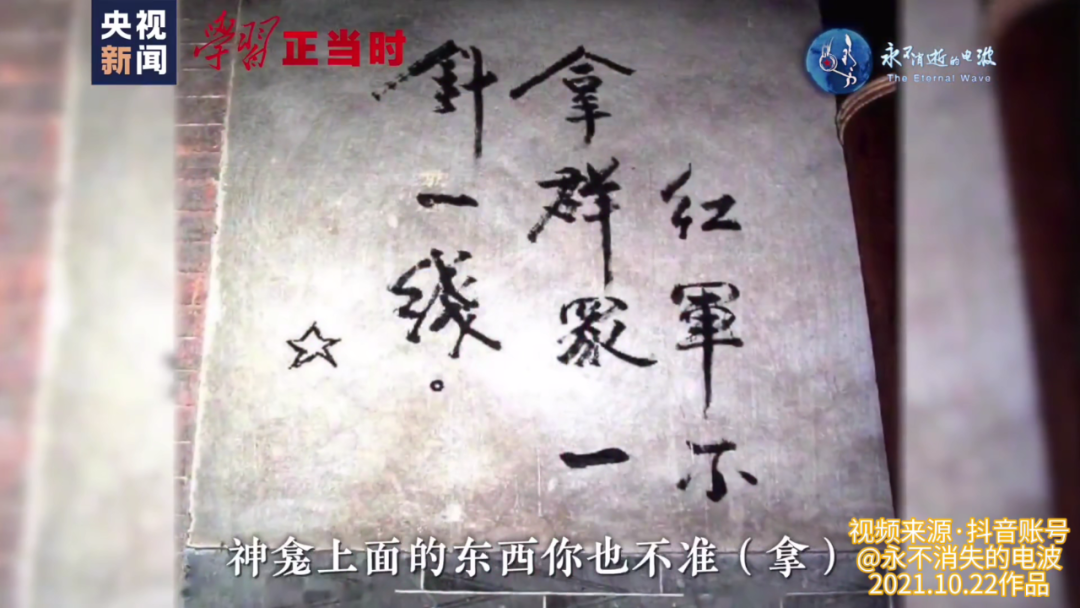 央视
新闻
学习正当时
永不消逝的电波
The Eternal Wave
红軍不
拿群眾一
針一綫。
神龛上面的东西你也不准（拿）
视频来源·抖音账号
@永不消失的电波
2021.10.22作品